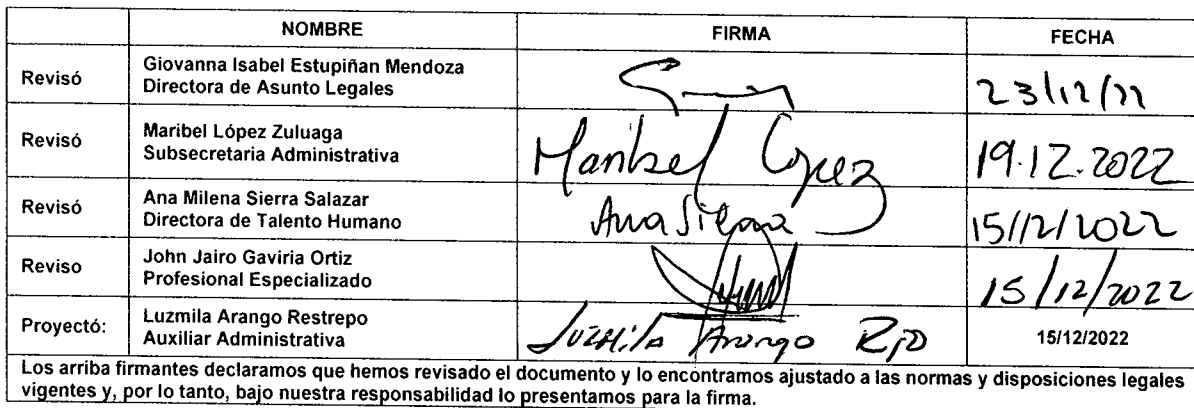 NOMBRE FIRMA FECHA
Revisó Giovanna Isabel Estupiñan Mendoza
Directora de Asunto Legales 23/12/22
Revisó Maribel López Zuluaga
Subsecretaria Administrativa Maribel López 19.12.2022
Revisó Ana Milena Sierra Salazar
Directora de Talento Humano Ana Sierra 15/12/2022
Reviso John Jairo Gaviria Ortiz
Profesional Especializado 15/12/2022
Proyectó: Luzmila Arango Restrepo
Auxiliar Administrativa Luzmila Arango Rpo 15/12/2022
Los arriba firmantes declaramos que hemos revisado el documento y lo encontramos ajustado a las normas y disposiciones legales
vigentes y, por lo tanto, bajo nuestra responsabilidad lo presentamos para la firma.